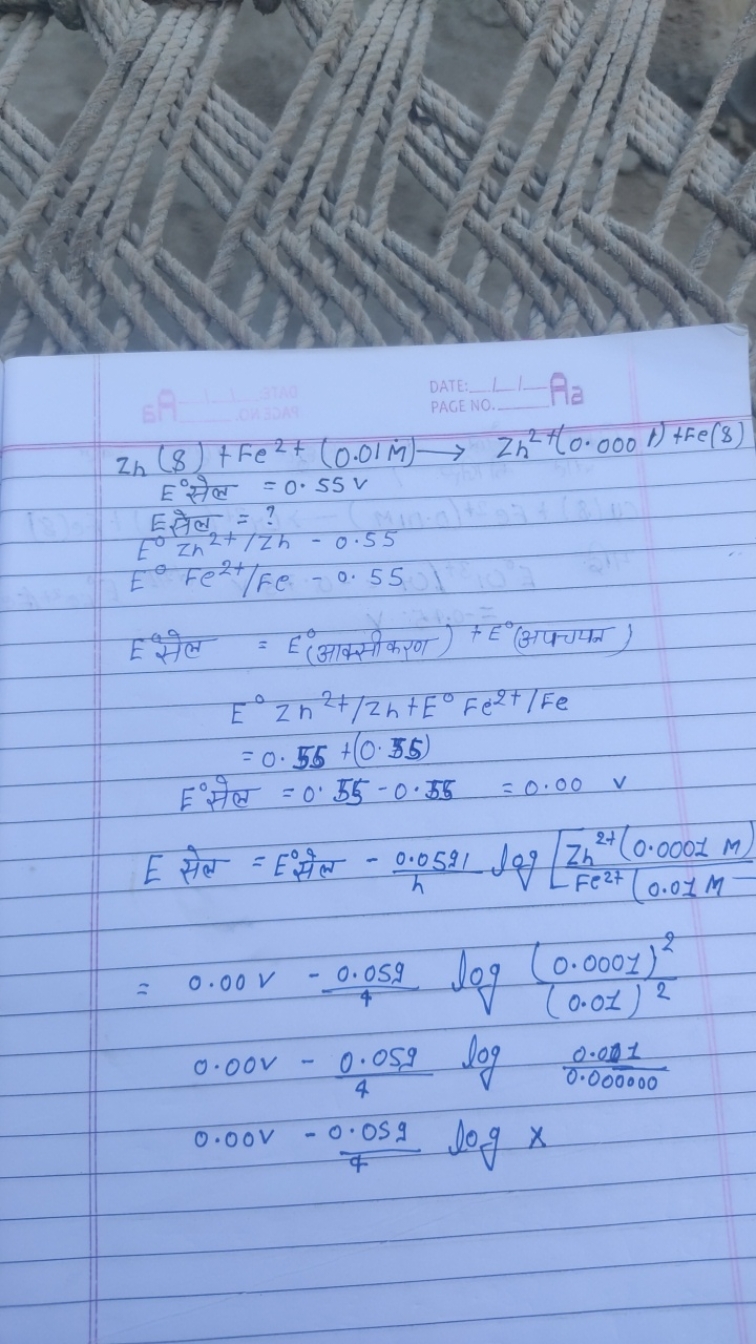 DATE: / /
PAGE NO.
Aa
Zn(8) + Fe2+ (0.01M) → Zn2+(0.0001) + Fe(8)
E°सेल = 0.55 V
Eसेल = ?
E° Zn2+/Zn - 0.55
E° Fe2+/Fe - 0.55
E°सेल = E°(आक्सीकरण) + E°(अपचयन)
E° Zn2+/Zn + E° Fe2+/Fe
= 0.55 + (0.55)
E°सेल = 0.55 - 0.55 = 0.00 V
E सेल = E°सेल - 0.0591/n log [Zn2+ (0.0001 M)/Fe2+ (0.01 M
= 0.00 V - 0.059/4 log (0.0001)2/(0.01)2
0.00V - 0.059/4 log 0.001/0.000000
0.00V - 0.059/4 log x